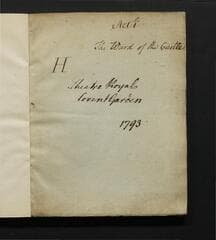 Act 1
The Ward of the Castle
H
Theatre Royal
Covent Garden
1793